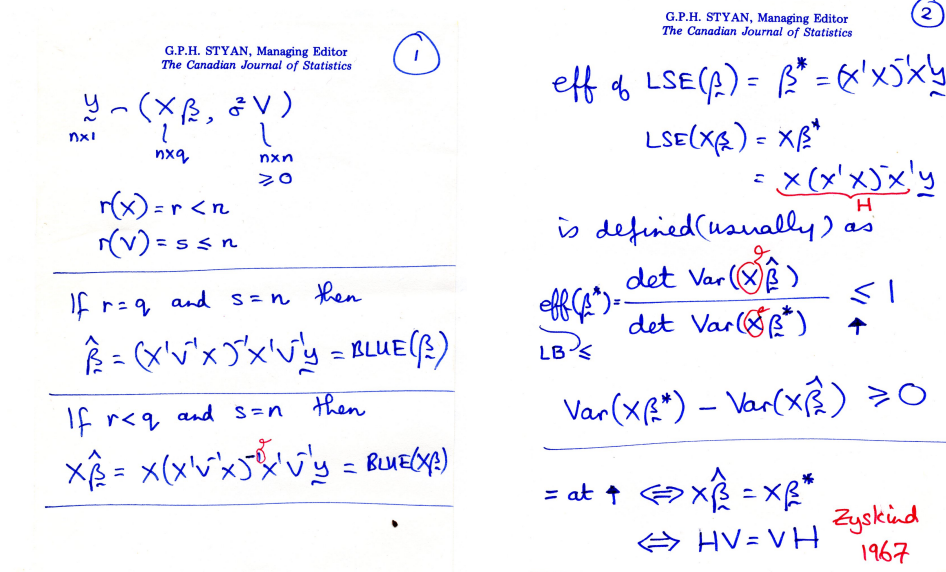 G.P.H. STYAN, Managing Editor
The Canadian Journal of Statistics
1
y ~ (Xβ, σ²V)
n×1
n×q n×n
≥0
r(X) = r < n
r(V) = s ≤ n
If r = q and s = n then
β̂ = (X'V⁻¹X)⁻¹X'V⁻¹y = BLUE(β)
If r < q and s = n then
Xβ̂ = X(X'V⁻¹X)⁻X'V⁻¹y = BLUE(Xβ)
G.P.H. STYAN, Managing Editor
The Canadian Journal of Statistics
2
eff of LSE(β) = β* = (X'X)⁻¹X'y
LSE(Xβ) = Xβ*
= X(X'X)⁻X'y
H
is defined (usually) as
eff(β*) = det Var(Xβ̂) / det Var(Xβ*) ≤ 1
LB ≤ ↑
Var(Xβ*) − Var(Xβ̂) ≥ 0
= at ↑ ⟺ Xβ̂ = Xβ*
⟺ HV = VH
Zyskind
1967